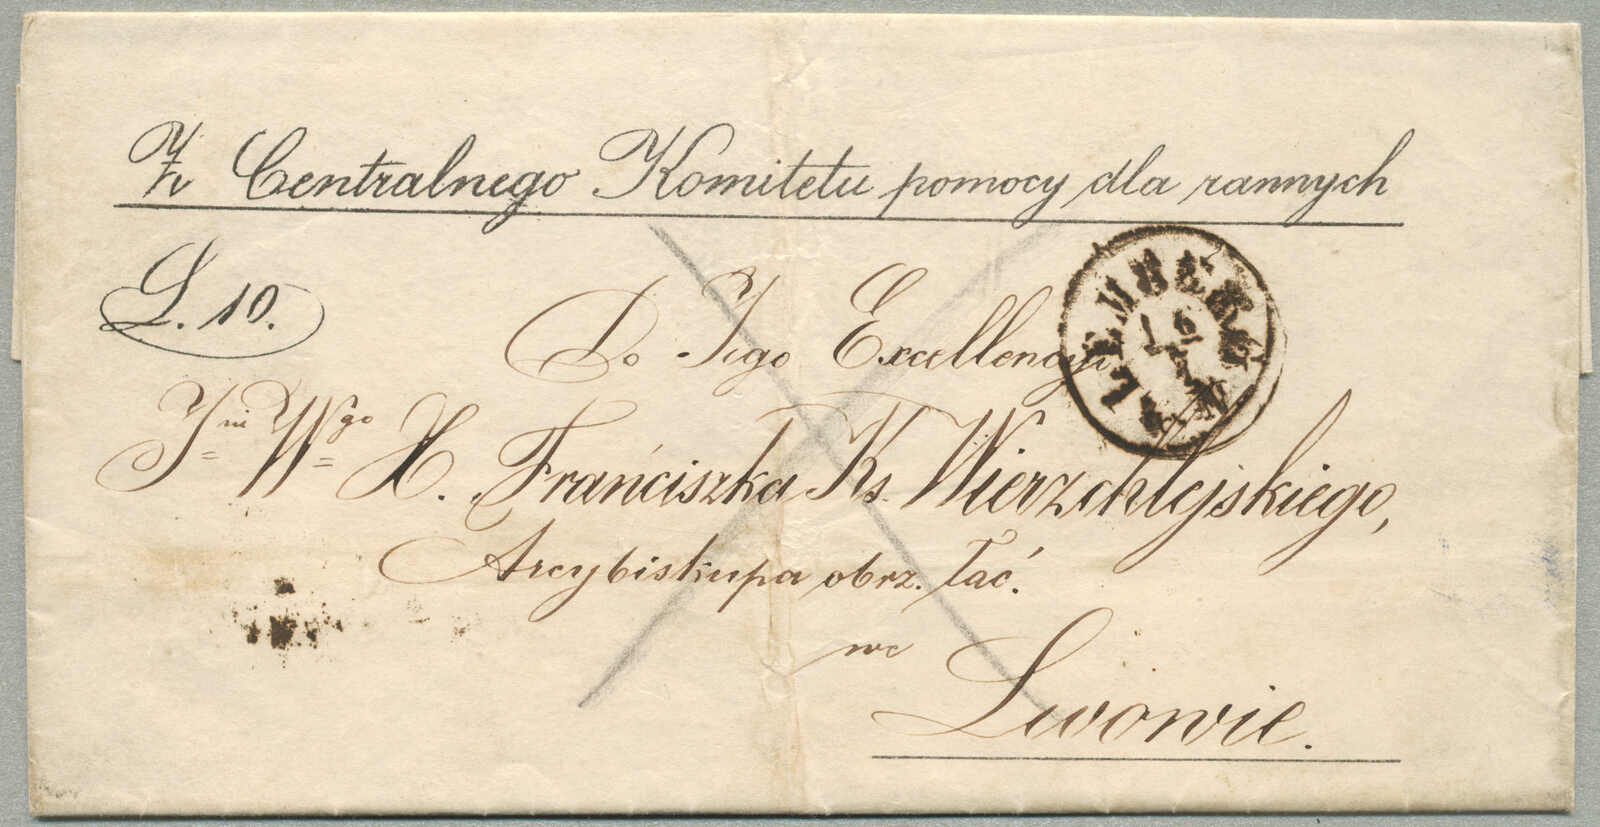 Z Centralnego Komitetu pomocy dla rannych
L. 10.
LEMBERG
Do Jego Excellencyi
Jm Wgo X. Franciszka Ks. Wierzchlejskiego,
Arcybiskupa obrz. łać.
we
Lwowie.